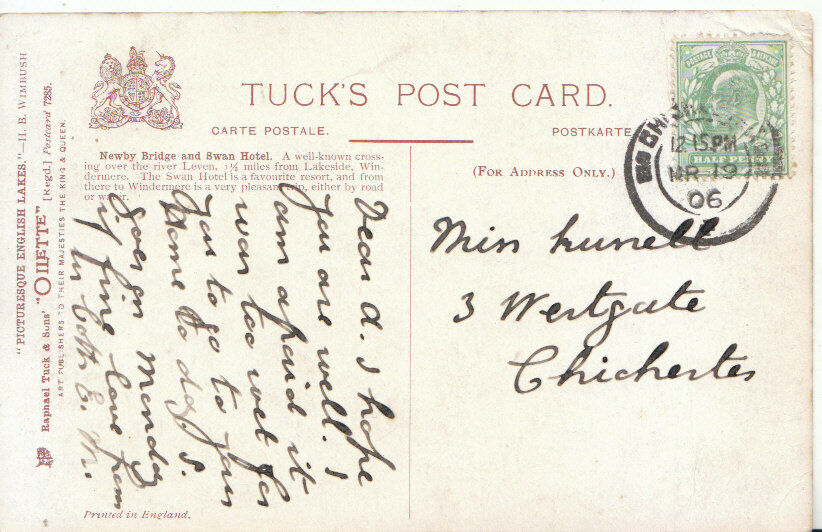 TUCK'S POST CARD.
CARTE POSTALE.
POSTKARTE
Newby Bridge and Swan Hotel. A well-known cross-
ing over the river Leven, 1½ miles from Lakeside, Win-
dermere. The Swan Hotel is a favourite resort, and from
there to Windermere is a very pleasant trip, either by road
or water.
(FOR ADDRESS ONLY.)
POSTAGE & REVENUE
HALF PENNY
12 15 PM
MR 19
06
"PICTURESQUE ENGLISH LAKES."—H. B. WIMBUSH
Raphael Tuck & Sons' "OILETTE" [Regd.] Postcard 7285.
ART PUBLISHERS TO THEIR MAJESTIES THE KING & QUEEN.
Dear A. I hope
you are well. I
am afraid it
was too wet for
you to go to your
Home to day. S.
goes on Monday
if fine love from
us both E. M.
Miss
3 Westgate
Chichester
Printed in England.